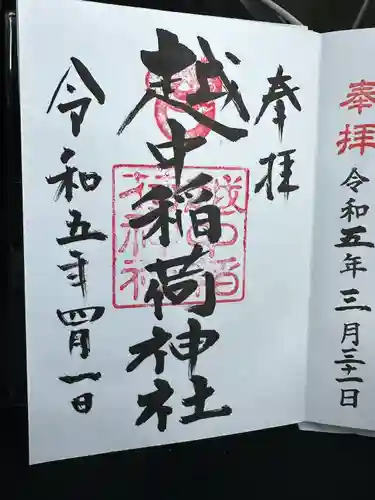 奉拝
令和五年三月三十一日
奉拝
越中稲荷神社
令和五年四月一日